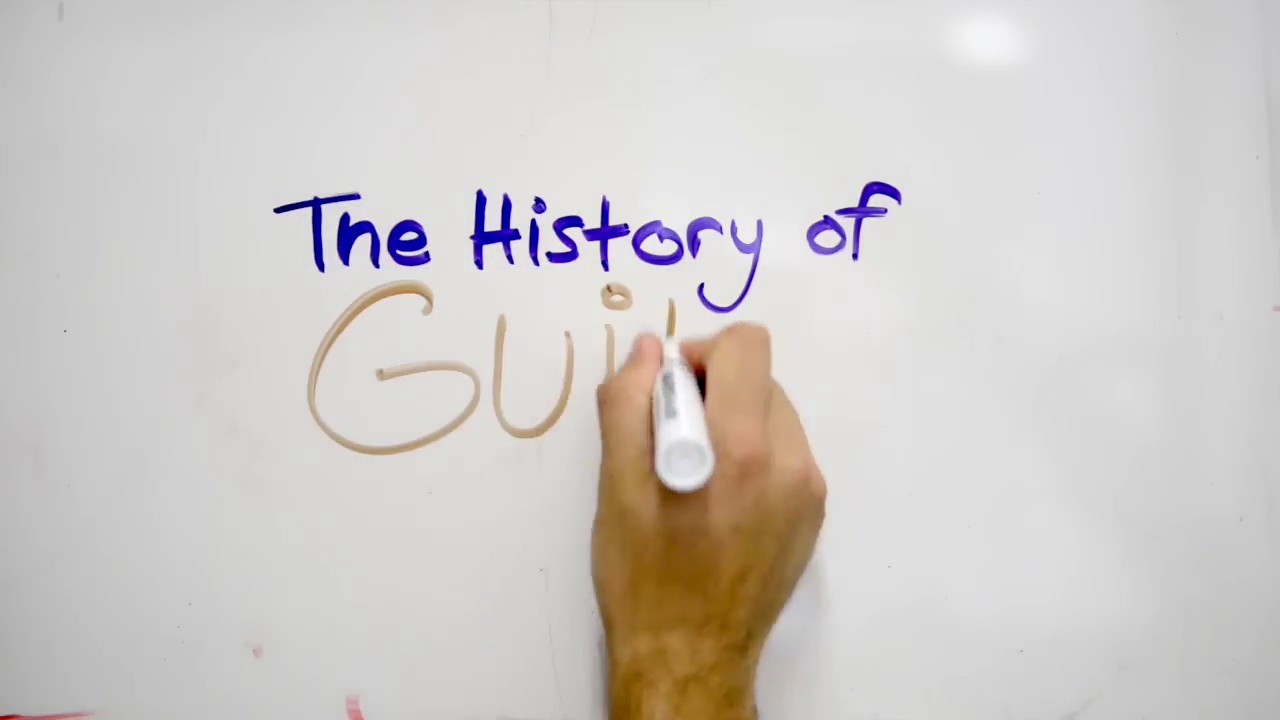 The History of
Gui